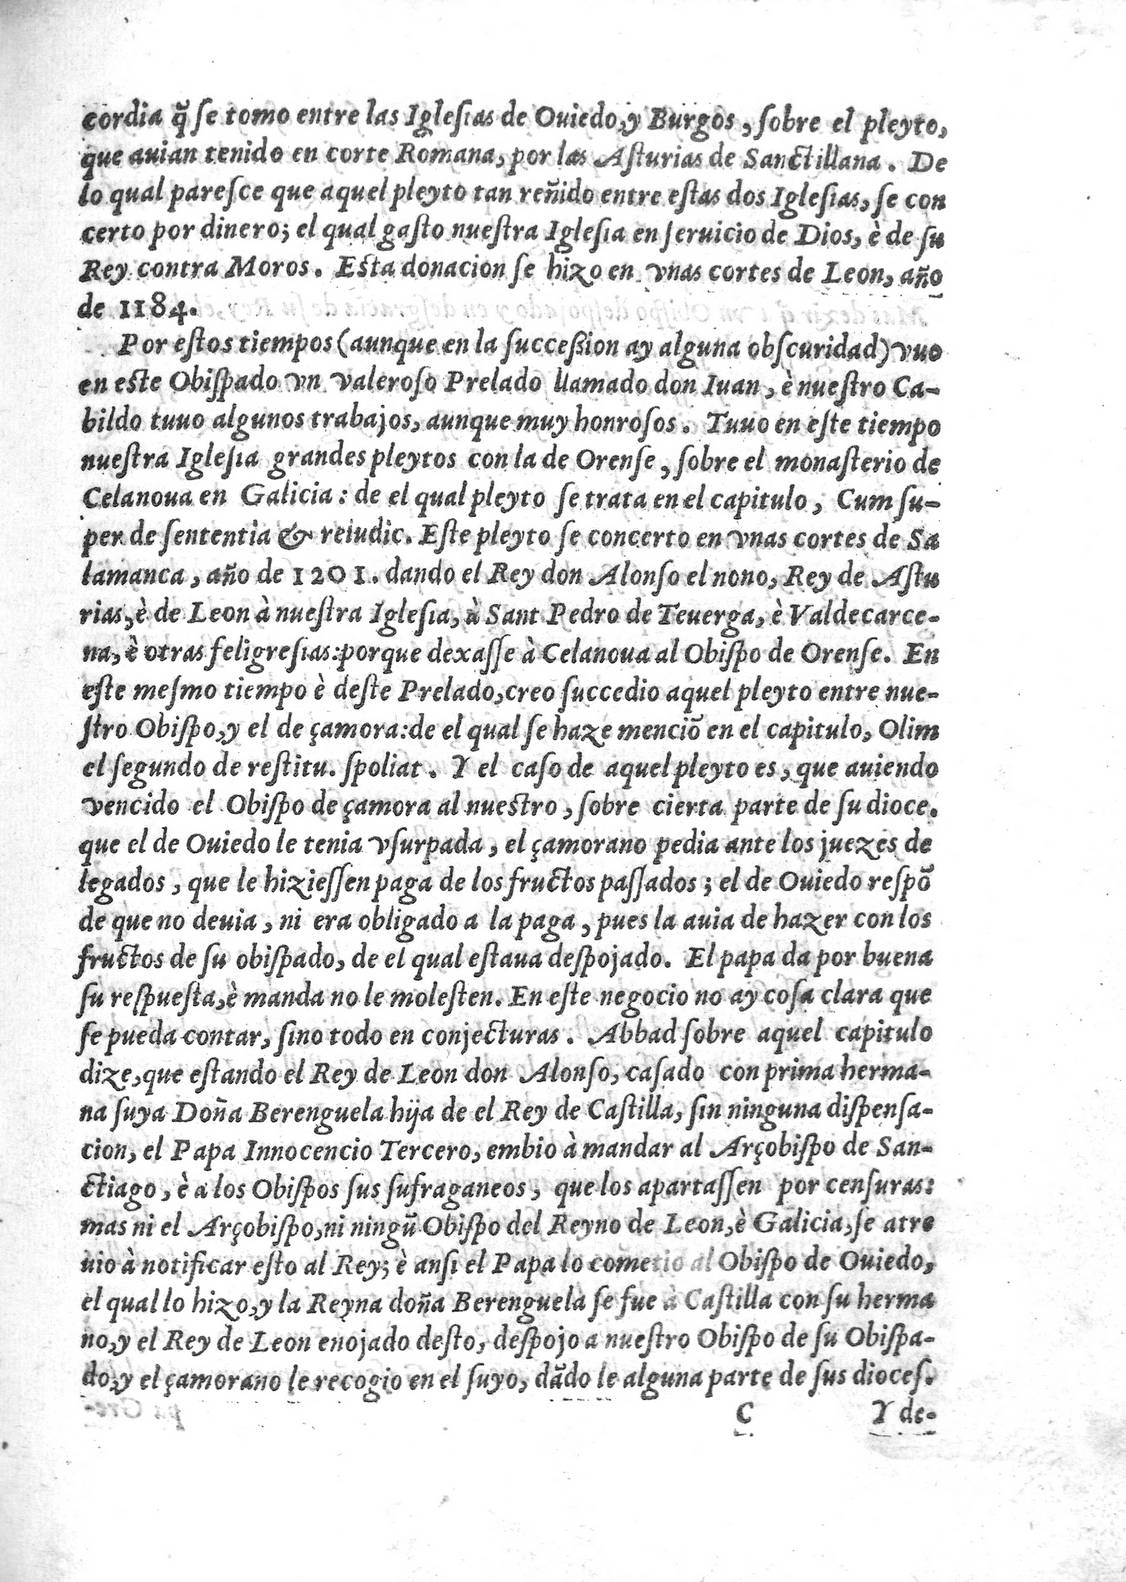 cordia q̃ ſe tomo entre las Igleſias de Ouiedo,y Burgos, ſobre el pleyto,
que auian tenido en corte Romana, por las Aſturias de Sanctillana. De
lo qual pareſce que aquel pleyto tan reñido entre eſtas dos Igleſias, ſe con
certo por dinero; el qual gaſto nueſtra Igleſia en ſeruicio de Dios, è de ſu
Rey contra Moros. Eſta donacion ſe hizo en vnas cortes de Leon, año
de 1184.
Por eſtos tiempos (aunque en la ſucceßion ay alguna obſcuridad) vuo
en eſte Obiſpado vn valeroſo Prelado llamado don Iuan, è nueſtro Ca-
bildo tuuo algunos trabajos, aunque muy honroſos. Tuuo en eſte tiempo
nueſtra Igleſia grandes pleytos con la de Orenſe, ſobre el monaſterio de
Celanoua en Galicia: de el qual pleyto ſe trata en el capitulo, Cum ſu-
per de ſententia & reiudic. Eſte pleyto ſe concerto en vnas cortes de Sa
lamanca, año de 1201. dando el Rey don Alonſo el nono, Rey de Aſtu
rias, è de Leon à nueſtra Igleſia, à Sant Pedro de Teuerga, è Valdecarce-
na, è otras feligreſias: porque dexaſſe à Celanoua al Obiſpo de Orenſe. En
eſte meſmo tiempo è deſte Prelado, creo ſuccedio aquel pleyto entre nue-
ſtro Obiſpo,y el de çamora: de el qual ſe haze menciõ en el capitulo, Olim
el ſegundo de reſtitu. ſpoliat. Y el caſo de aquel pleyto es, que auiendo
vencido el Obiſpo de çamora al nueſtro, ſobre cierta parte de ſu dioce.
que el de Ouiedo le tenia vſurpada, el çamorano pedia ante los juezes de
legados, que le hizieſſen paga de los fructos paſſados; el de Ouiedo reſpõ
de que no deuia, ni era obligado a la paga, pues la auia de hazer con los
fructos de ſu obiſpado, de el qual eſtaua deſpojado. El papa da por buena
ſu reſpueſta, è manda no le moleſten. En eſte negocio no ay coſa clara que
ſe pueda contar, ſino todo en conjecturas. Abbad ſobre aquel capitulo
dize, que eſtando el Rey de Leon don Alonſo, caſado con prima herma-
na ſuya Doña Berenguela hija de el Rey de Caſtilla, ſin ninguna diſpenſa-
cion, el Papa Innocencio Tercero, embio à mandar al Arçobiſpo de San-
ctiago, è a los Obiſpos ſus ſufraganeos, que los apartaſſen por cenſuras:
mas ni el Arçobiſpo,ni ningũ Obiſpo del Reyno de Leon, è Galicia, ſe atre
uio à notificar eſto al Rey; è anſi el Papa lo cometio al Obiſpo de Ouiedo,
el qual lo hizo,y la Reyna doña Berenguela ſe fue à Caſtilla con ſu herma
no,y el Rey de Leon enojado deſto, deſpojo a nueſtro Obiſpo de ſu Obiſpa-
do,y el çamorano le recogio en el ſuyo, dãdo le alguna parte de ſus dioceſ.
C Y de-